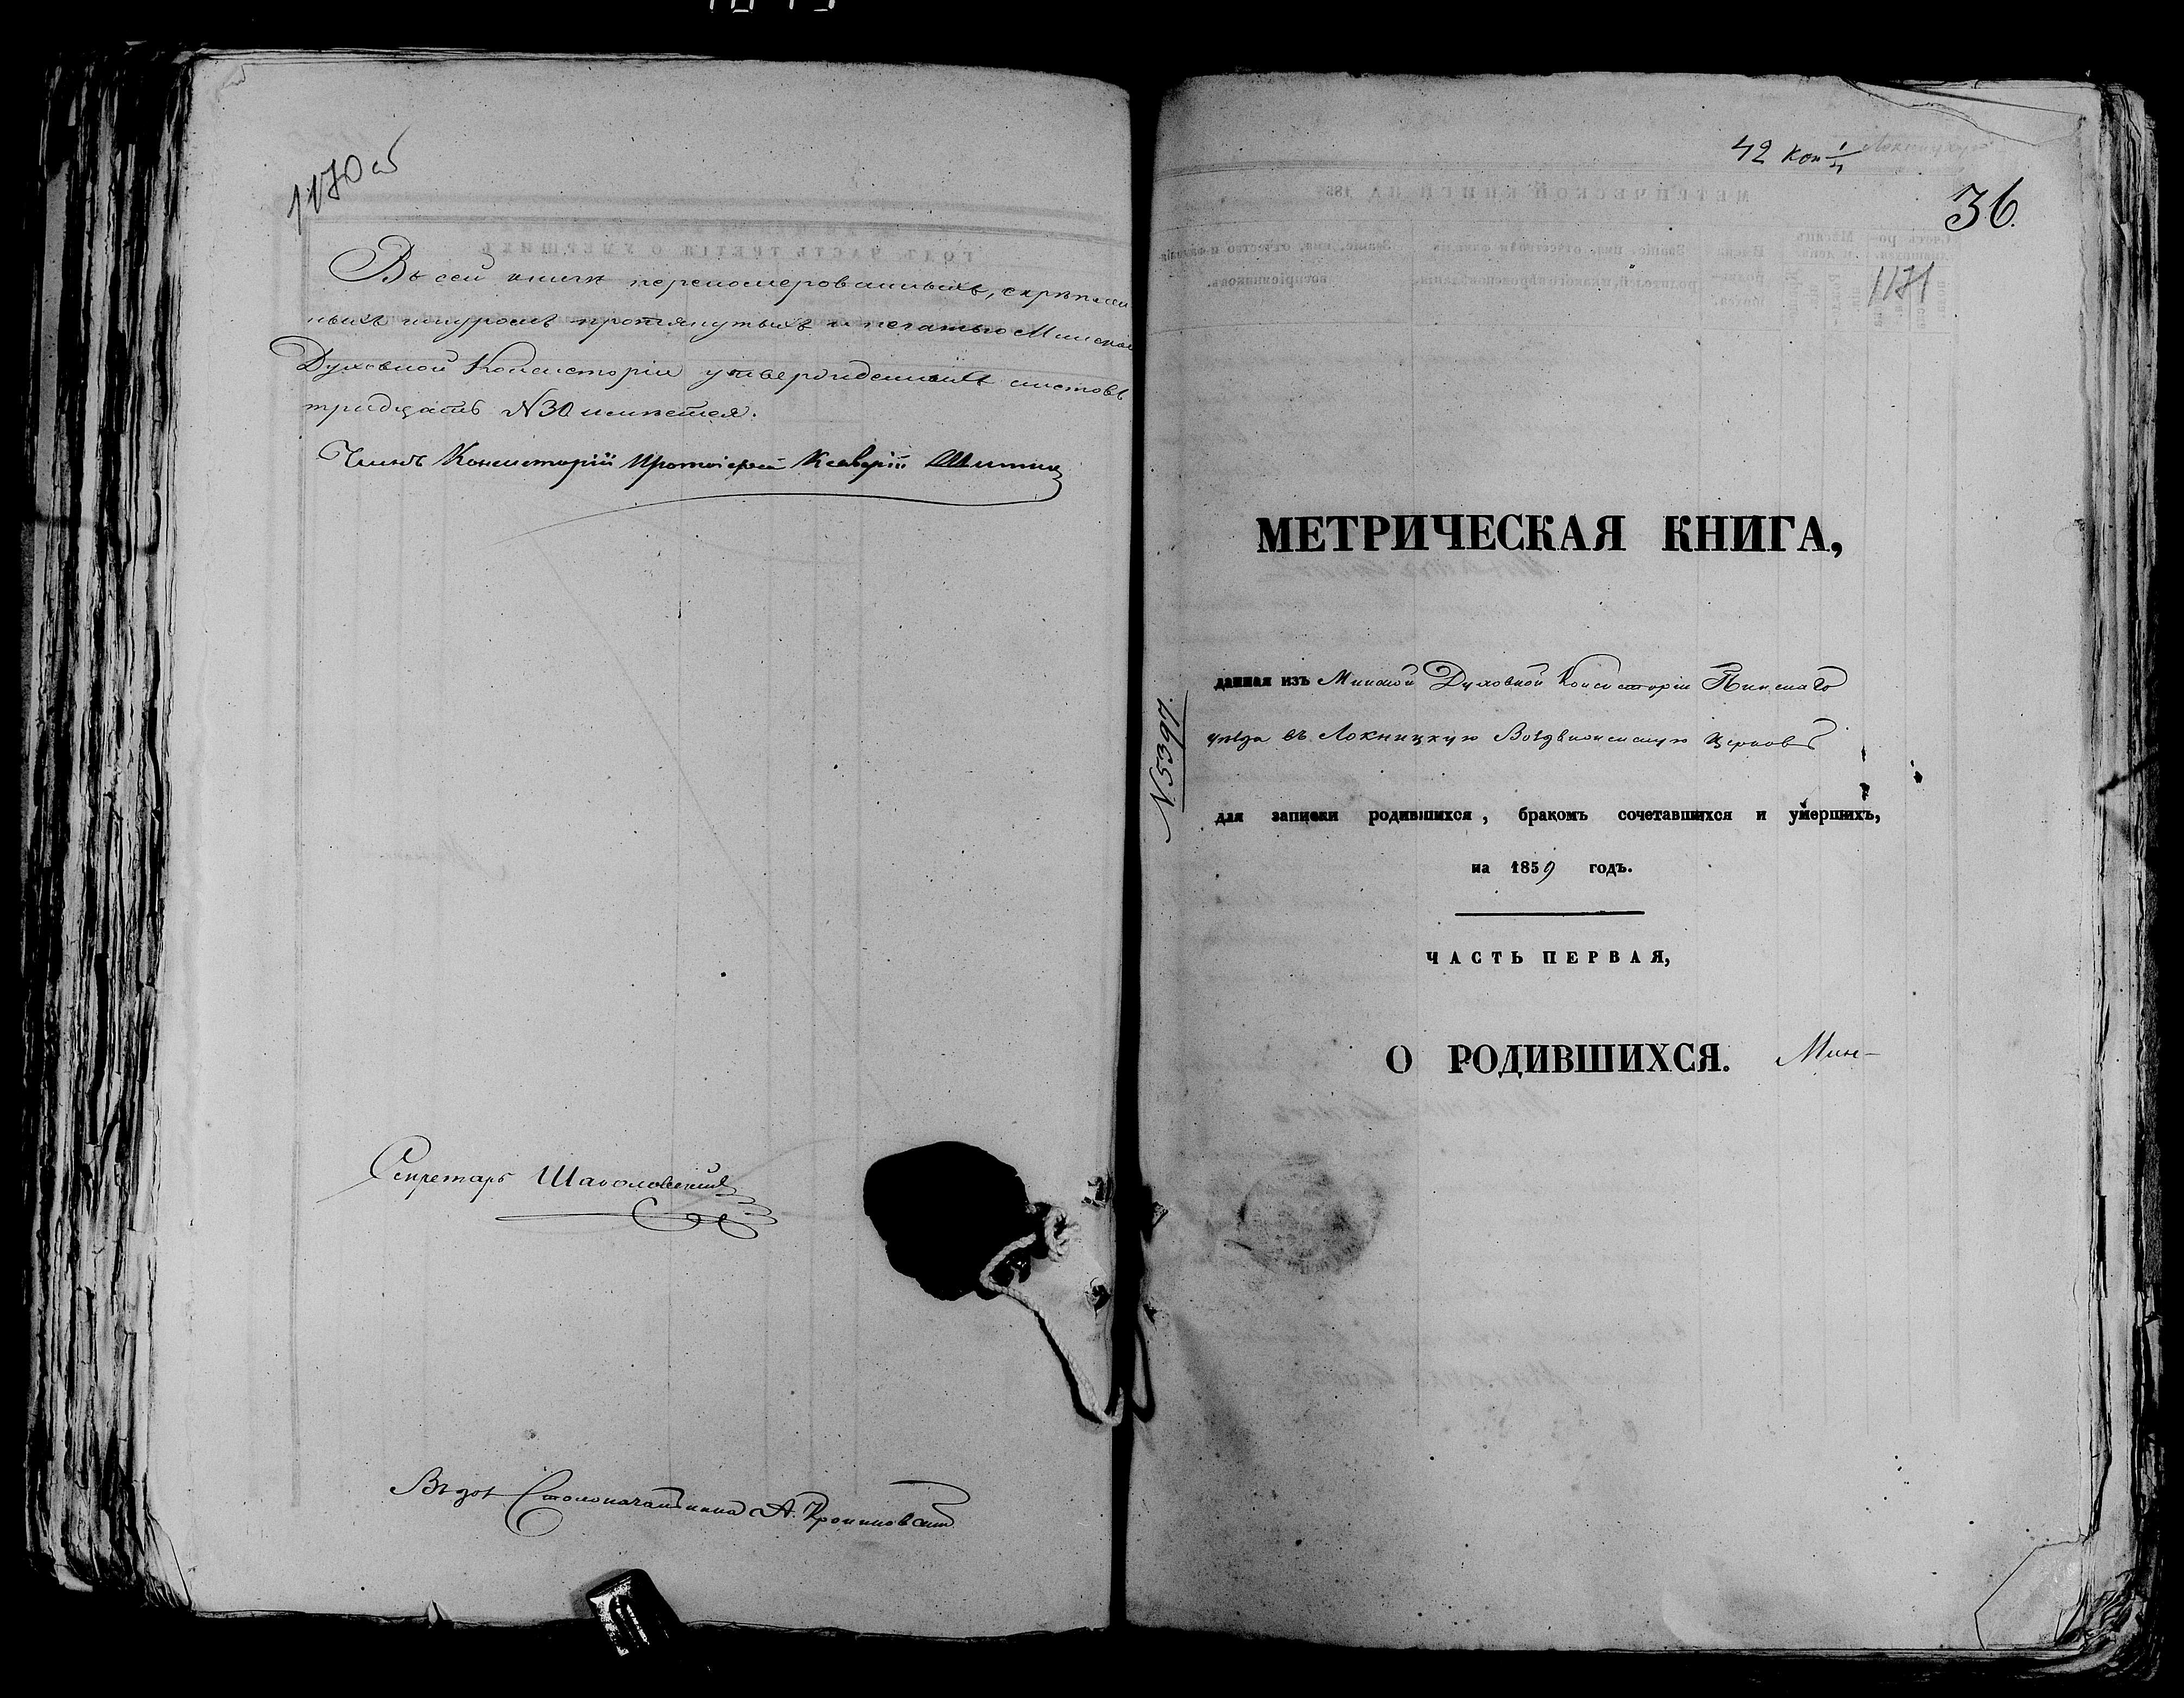 1170 об
Въ сей книгѣ перенумерованныхъ, скрѣплен
ныхъ шнуромъ протянутыхъ и печатью Минской
Духовной Консисторіи утвержденныхъ листовъ
тридцать №30 имѣется.
Членъ Консисторіи Протоіерей Ксаверій
Секретарь
Столоначальника А.
42 коп
36.
1171
МЕТРИЧЕСКАЯ КНИГА,
данная изъ Минской Духовной Консисторіи Пинскаго
уѣзда въ Локницкую Воздвиженскую Церковь
№5397.
для записки родившихся, бракомъ сочетавшихся и умершихъ,
на 1859 годъ.
ЧАСТЬ ПЕРВАЯ,
О РОДИВШИХСЯ. Мин-